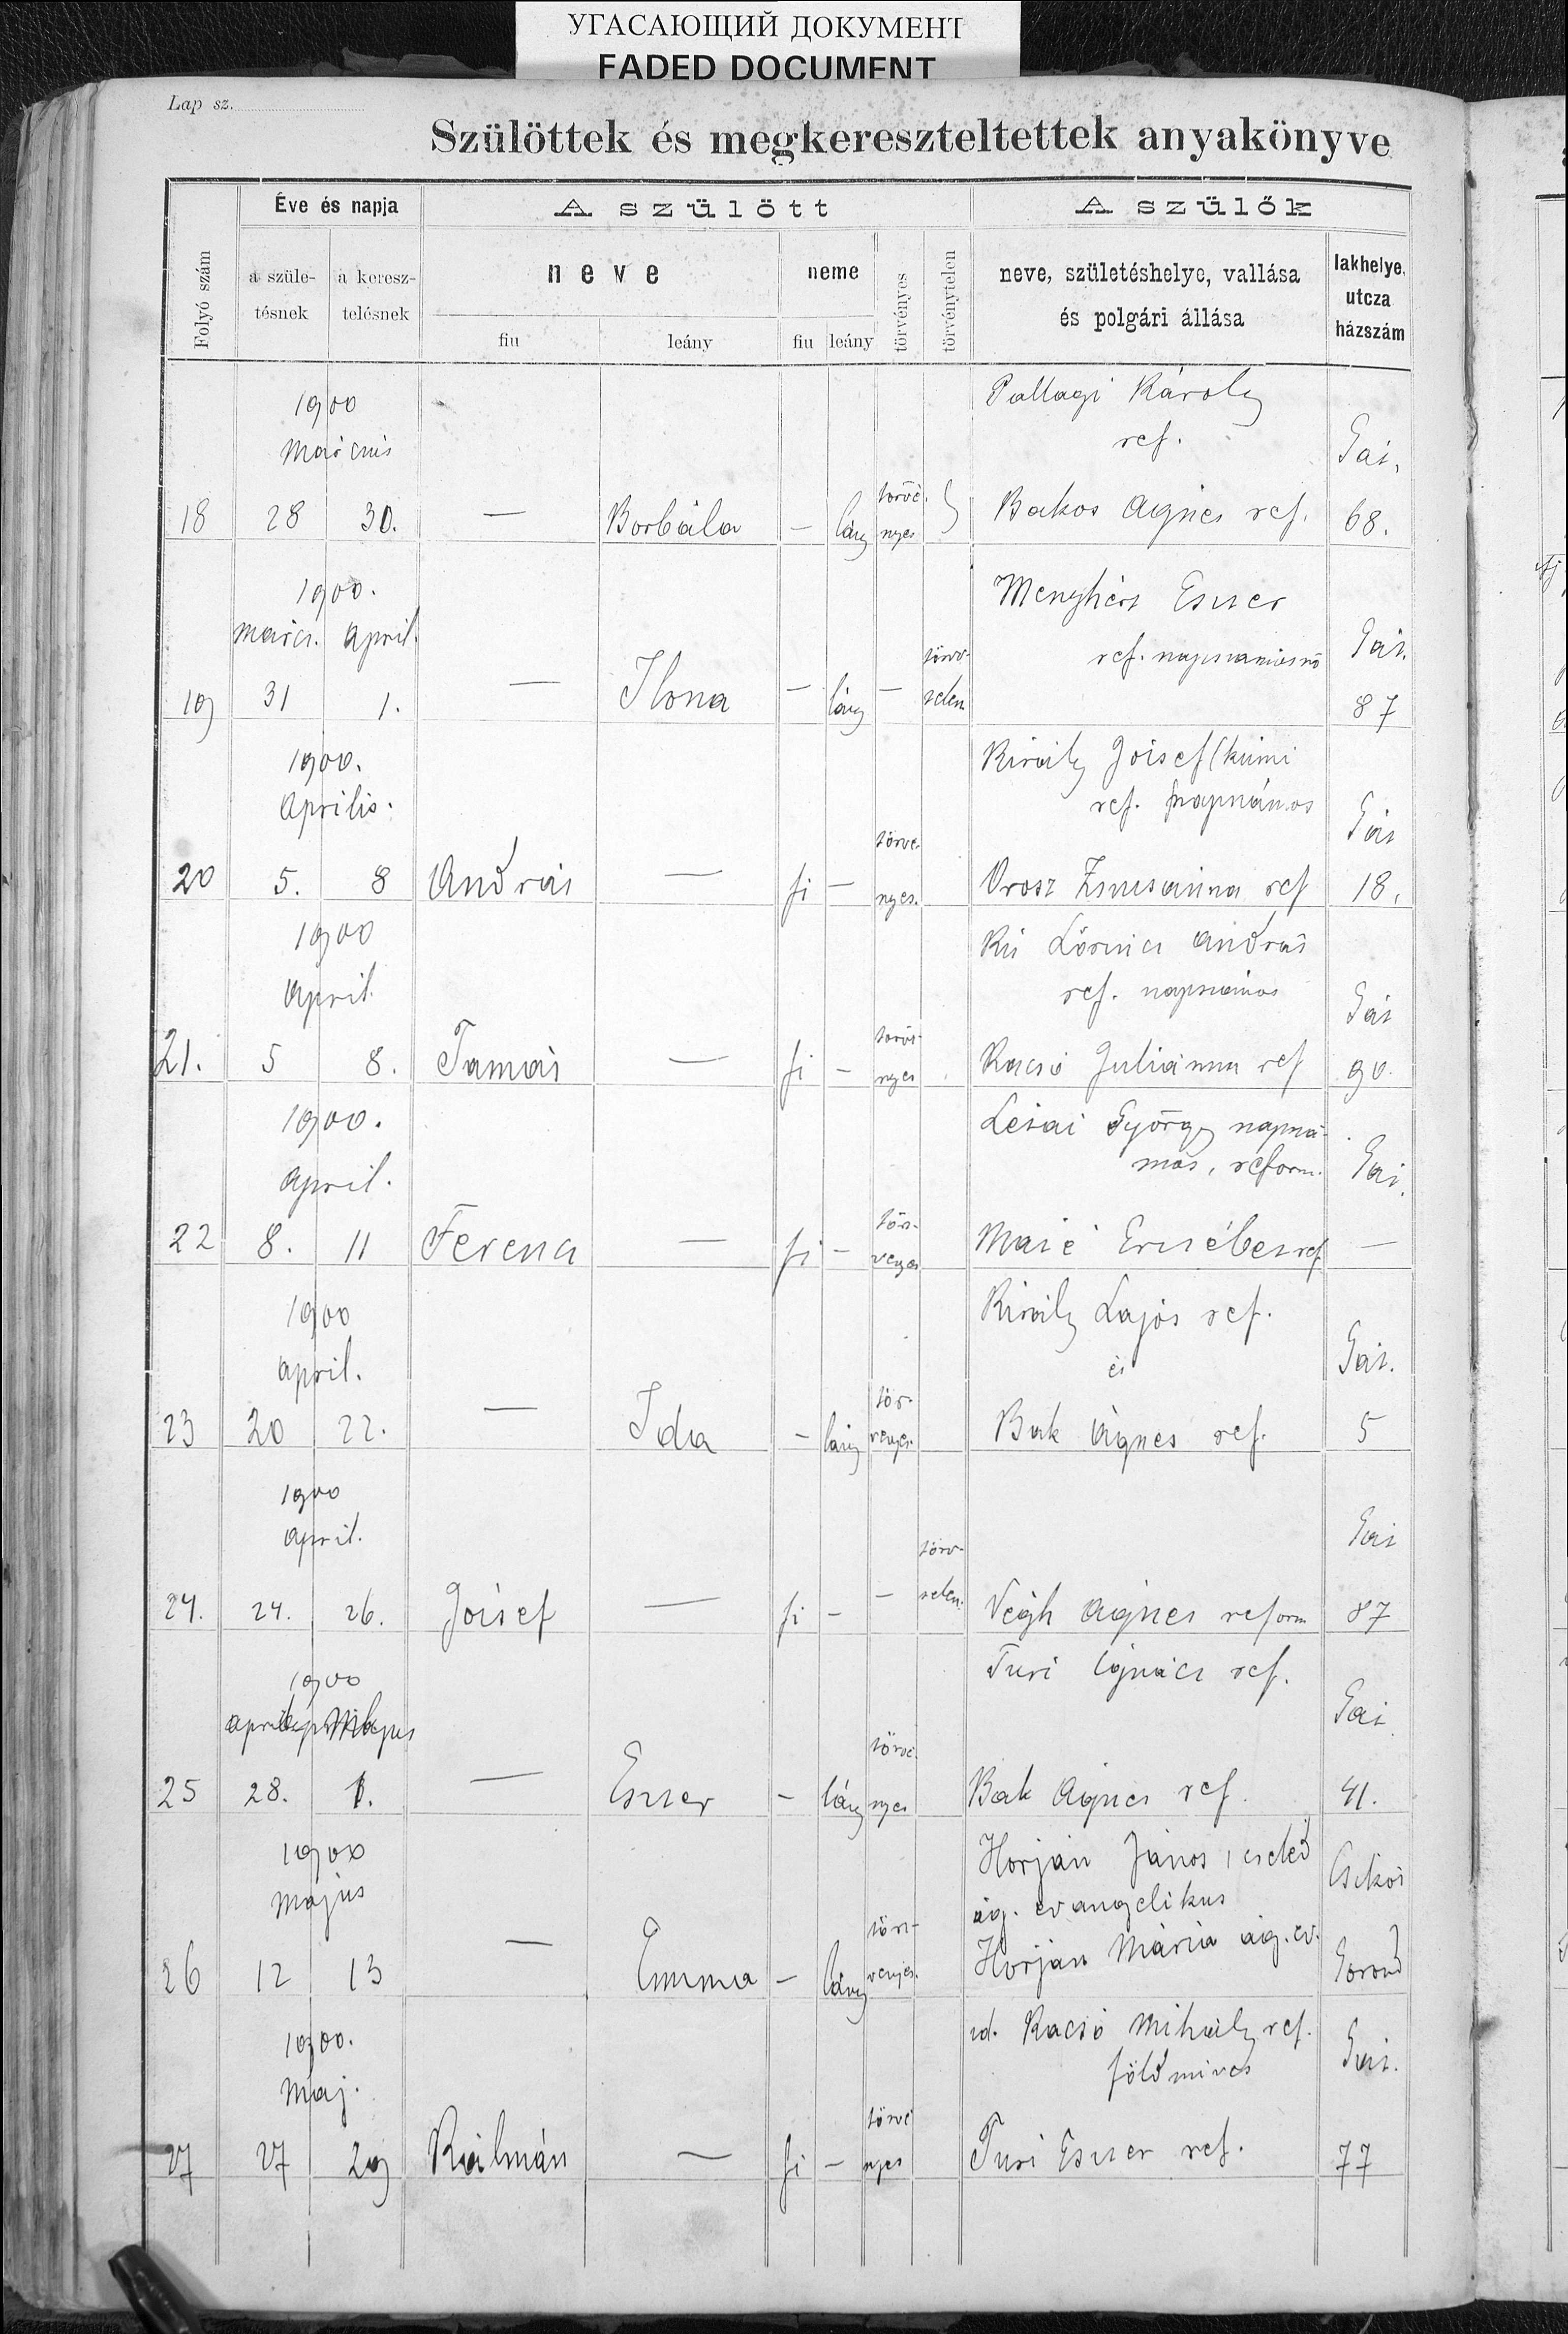 УГАСАЮЩИЙ ДОКУМЕНТ
FADED DOCUMENT
Lap sz.
Szülöttek és megkereszteltettek anyakönyve
Folyó szám
Éve és napja
a születésnek
a keresztelésnek
A szülött
neve
fiu
leány
neme
fiu
leány
törvényes
törvénytelen
A szülők
neve, születéshelye, vallása
és polgári állása
lakhelye,
utcza
házszám
1900
Márczius
Pallagi Károly
ref.
Gát,
18 28 30. — Borbála — lány törvényes Bakos Ágnes ref. 68.
1900.
Márcz. April.
Menyhért Eszter
ref. napszámosnő
Gát.
19 31 1. — Ilona — lány — törvtelen 87
1900.
Április.
Király József
ref. napszámos
Gát
20 5. 8 András — fi — törvényes. Orosz Zsuzsánna ref 18.
1900
April
Kis Lőrincz András
ref. napszámos
Gát
21. 5 8. Tamás — fi — törvényes Kacsó Juliánna ref 90.
1900.
April.
György napszámos, reform.
Gát.
22 8. 11 Ferencz — fi — törvényes Máté Erzsébet ref —
1900
April.
Király Lajos ref.
és
Gát.
23 20 22. — Ida — lány törvényes. Bak Ágnes ref. 5
1900
April.
Gát
24. 24. 26. József — fi — — törvtelen. Végh Ágnes reform 87
1900
április Május
Turi Ignácz ref.
Gát
25 28. 1. — Eszter — lány törvényes Bak Ágnes ref. 41.
1900
Május
Horján János, cseléd
ág. evangelikus
Csikós
26 12 13 — Emma — lány törvényes. Horján Mária ág. ev. Gorond
1900.
Maj.
id. Kacsó Mihály ref.
földmives
Gát.
27 27 29 Kálmán — fi — törvényes Turi Eszter ref. 77